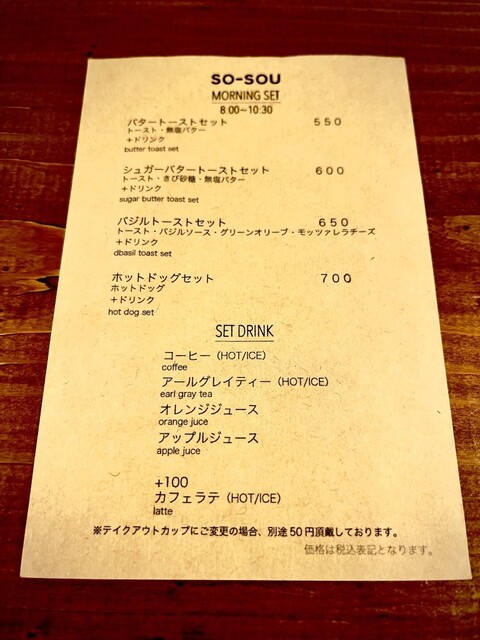 SO-SOU
MORNING SET
8:00~10:30
バタートーストセット 550
トースト・無塩バター
+ドリンク
butter toast set
シュガーバタートーストセット 600
トースト・きび砂糖・無塩バター
+ドリンク
sugar butter toast set
バジルトーストセット 650
トースト・バジルソース・グリーンオリーブ・モッツァレラチーズ
+ドリンク
dbasil toast set
ホットドッグセット 700
ホットドッグ
+ドリンク
hot dog set
SET DRINK
コーヒー (HOT/ICE)
coffee
アールグレイティー (HOT/ICE)
earl gray tea
オレンジジュース
orange juce
アップルジュース
apple juce
+100
カフェラテ (HOT/ICE)
latte
※テイクアウトカップにご変更の場合、別途50円頂戴しております。
価格は税込表記となります。